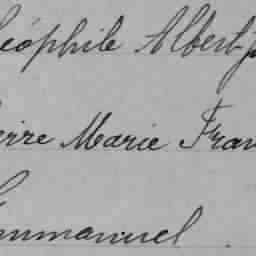 éophile Albert-J
erre Marie Fran
mmanuel.